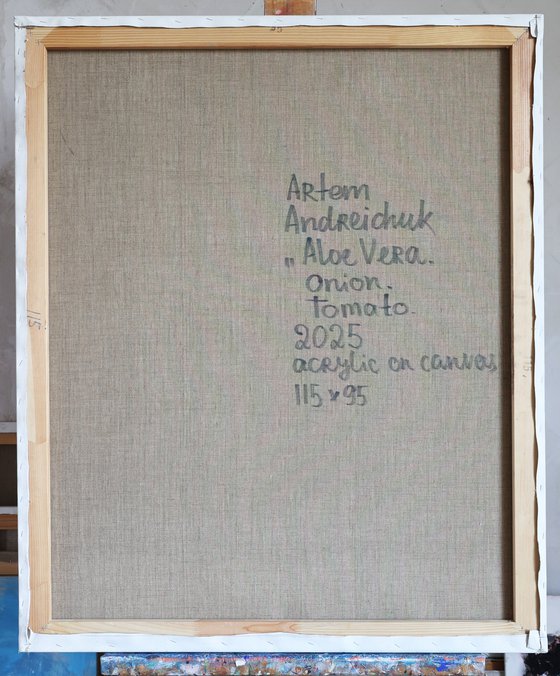 95
Artem
Andreichuk
„Aloe Vera.
onion.
tomato.
2025
acrylic on canvas
115 x 95
115
115